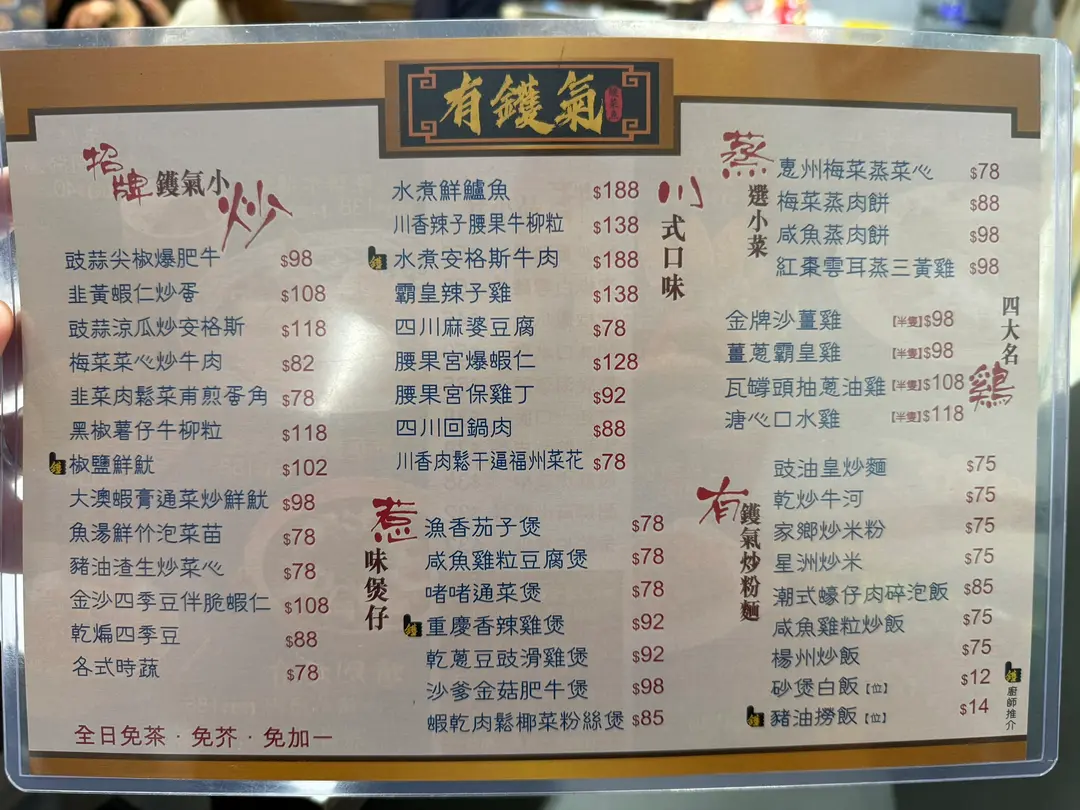 有鑊氣
招牌鑊氣小炒
豉蒜尖椒爆肥牛 $98
韭黃蝦仁炒蛋 $108
豉蒜涼瓜炒安格斯 $118
梅菜菜心炒牛肉 $82
韭菜肉鬆菜甫煎蛋角 $78
黑椒薯仔牛柳粒 $118
椒鹽鮮魷 $102
大澳蝦膏通菜炒鮮魷 $98
魚湯鮮竹泡菜苗 $78
豬油渣生炒菜心 $78
金沙四季豆伴脆蝦仁 $108
乾煸四季豆 $88
各式時蔬 $78
全日免茶 · 免芥 · 免加一
川式口味
水煮鮮鱸魚 $188
川香辣子腰果牛柳粒 $138
水煮安格斯牛肉 $188
霸皇辣子雞 $138
四川麻婆豆腐 $78
腰果宮爆蝦仁 $128
腰果宮保雞丁 $92
四川回鍋肉 $88
川香肉鬆干逼福州菜花 $78
惹味煲仔
漁香茄子煲 $78
咸魚雞粒豆腐煲 $78
啫啫通菜煲 $78
重慶香辣雞煲 $92
乾蔥豆豉滑雞煲 $92
沙爹金菇肥牛煲 $98
蝦乾肉鬆椰菜粉絲煲 $85
蒸選小菜
惠州梅菜蒸菜心 $78
梅菜蒸肉餅 $88
咸魚蒸肉餅 $98
紅棗雲耳蒸三黃雞 $98
四大名鷄
金牌沙薑雞 【半隻】$98
薑蔥霸皇雞 【半隻】$98
瓦罉頭抽蔥油雞 【半隻】$108
溏心口水雞 【半隻】$118
有鑊氣炒粉麵
豉油皇炒麵 $75
乾炒牛河 $75
家鄉炒米粉 $75
星洲炒米 $75
潮式蠔仔肉碎泡飯 $85
咸魚雞粒炒飯 $75
楊州炒飯 $75
砂煲白飯【位】 $12
豬油撈飯【位】 $14
廚師推介